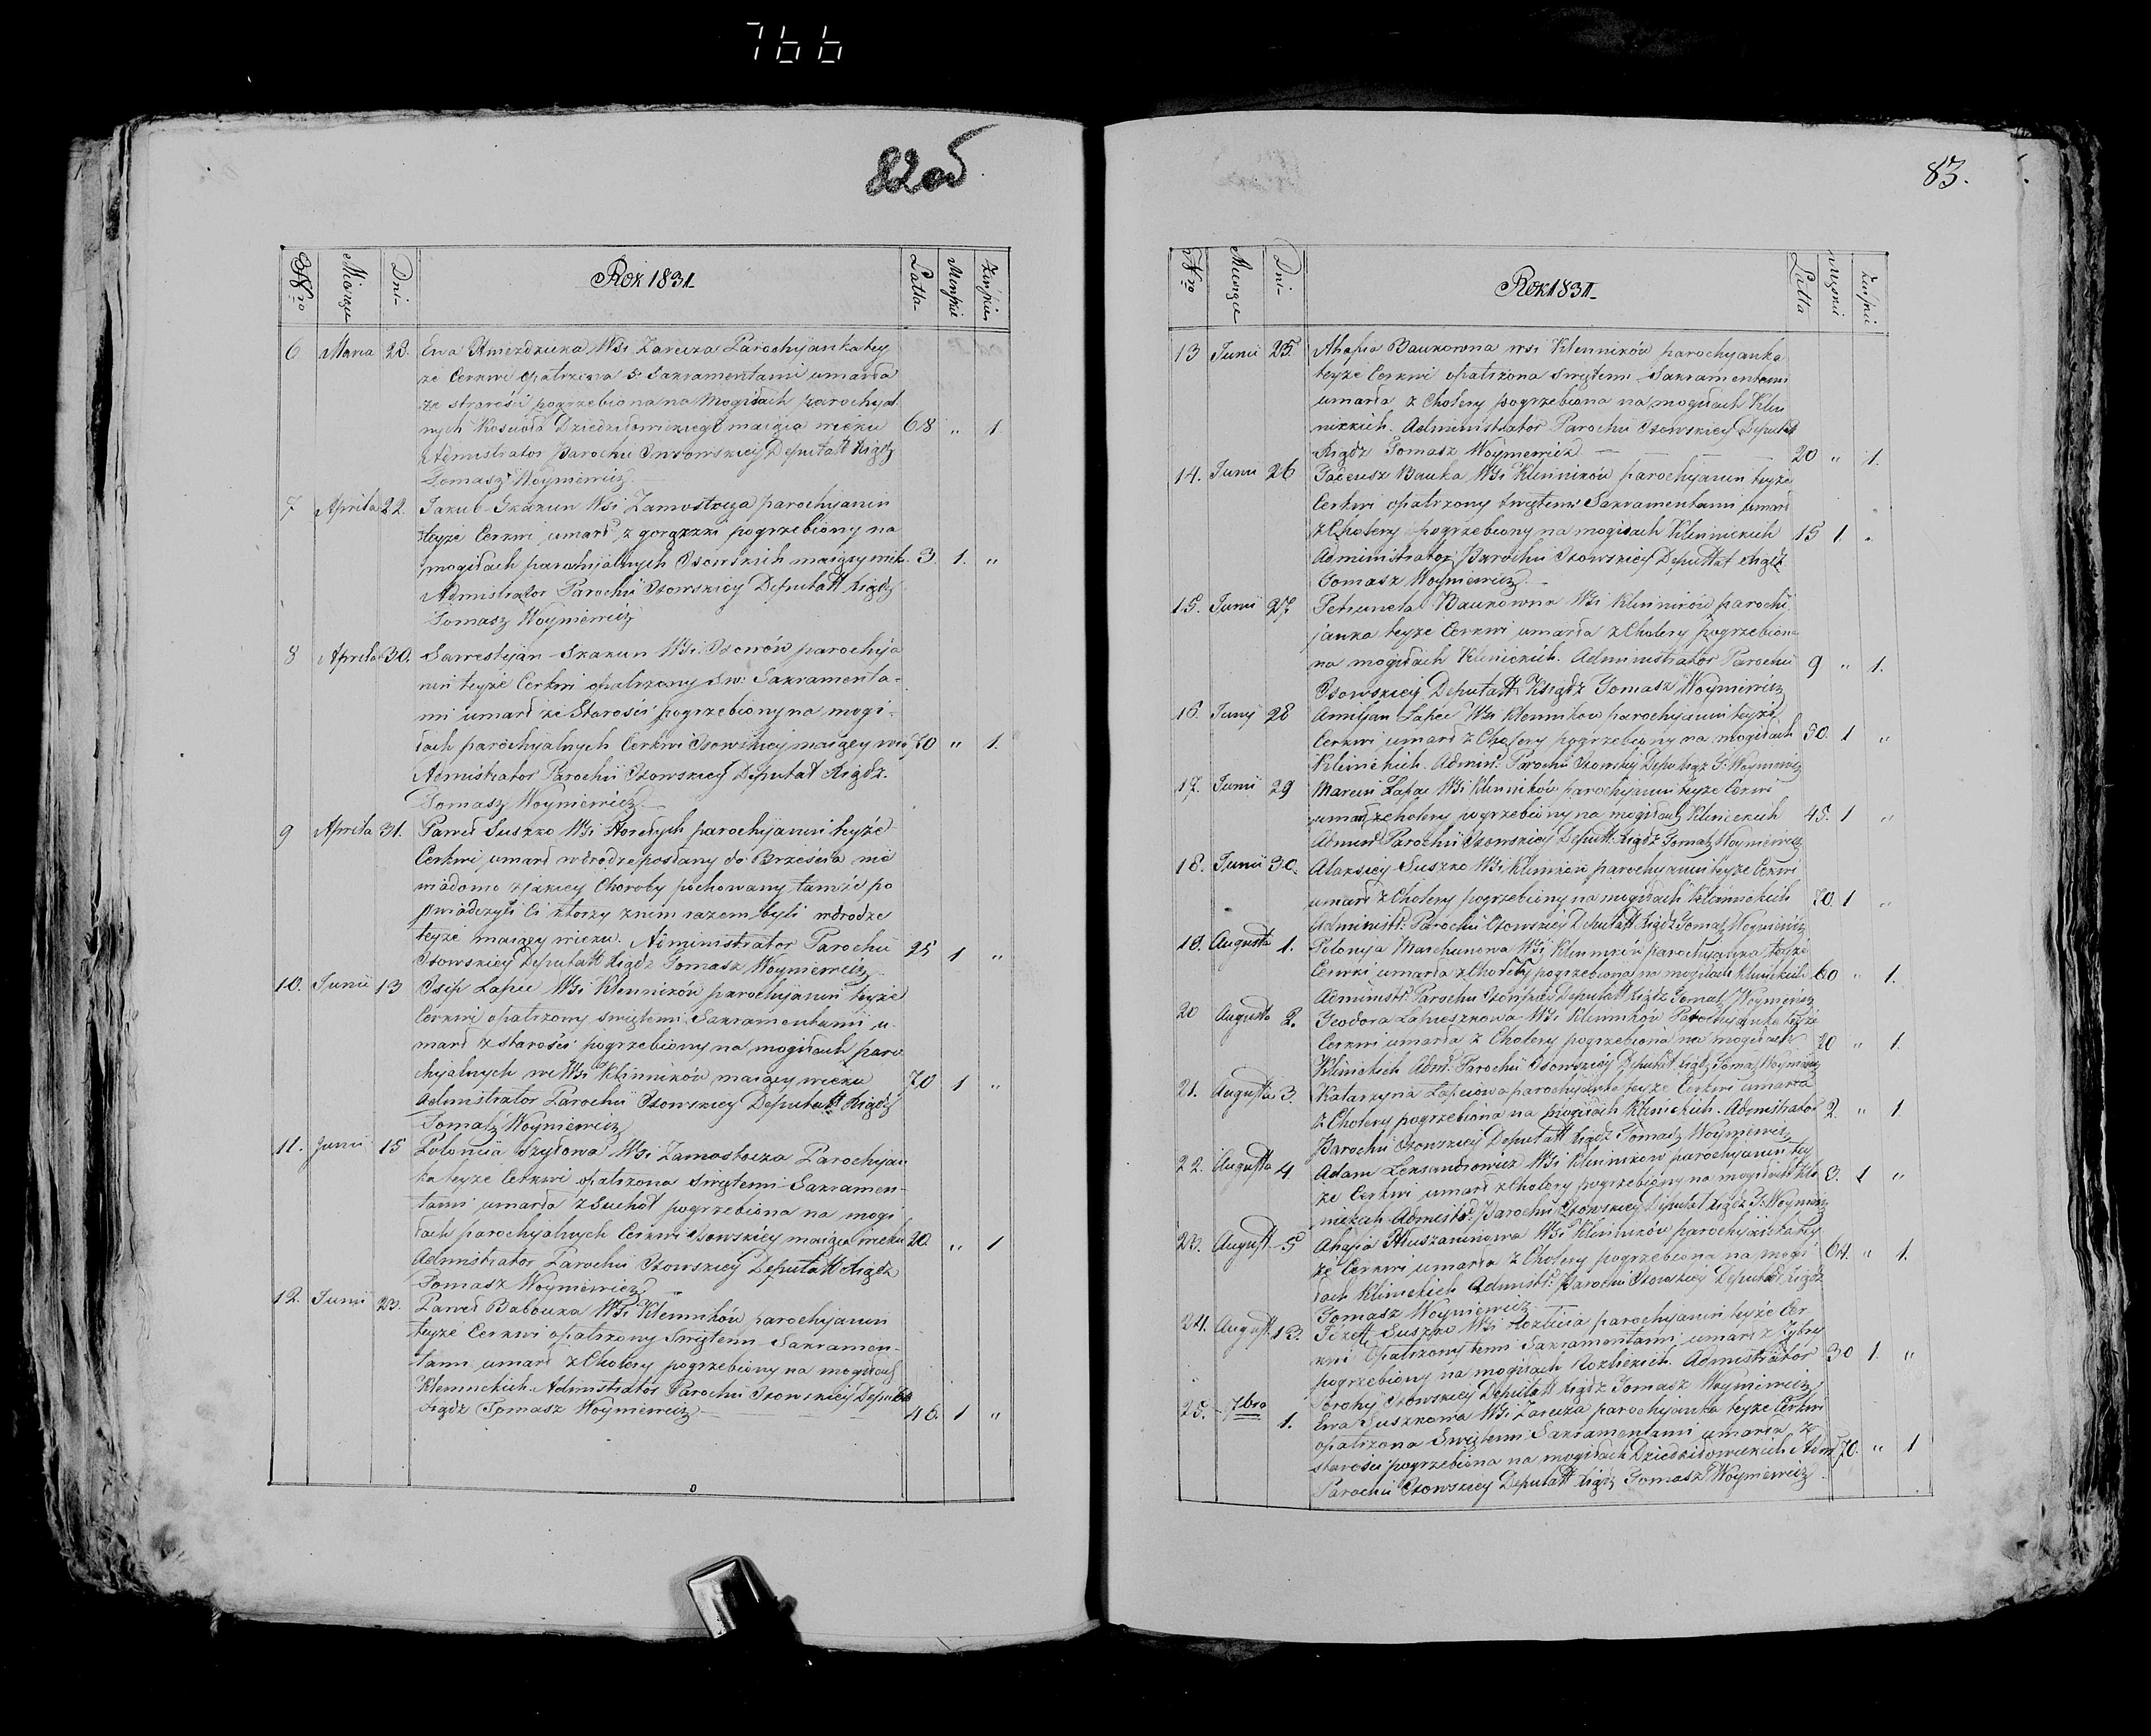 766
82об
Nro Miesiąc Dni Rok 1831 Latta Męskie Żeńskie
6 Marca 28. Ewa Wsi Zarcza Parochyanka tey
że Cerkwi opatrzona S: Sakramentami umarła
ze starości pogrzebiona na Mogiłach parochyal
nych Kościoła maiąca wieku 68 „ 1
Administrator Parochii Deputatt Xiądz
Tomasz Woyniewicz
7 Aprila 22. Jakub Skakun Wsi Zamostecza parochyanin
teyże Cerkwi umarł z gorączki pogrzebiony na
mogiłach parochyalnych Osowskich maiący wiek. 3. 1. „
Admistrator Parochii Osowskiey Deputatt Xiądz
Tomasz Woyniewicz
8 Aprila 30. Sawestyan Skakun Wsi Osowów parochya
nin teyże Cerkwi opatrzony Sw: Sakramenta-
mi umarł ze Starości pogrzebiony na mogi-
łach parochyalnych Cerkwi Osowskiey maiący wie 70 „ 1.
Admistrator Parochii Osowskiey Deputat Xiądz.
Tomasz Woyniewicz
9 Aprila 31. Paweł Suszko Wsi parochyanin teyże
Cerkwi umarł w drodze posłany do Brześcia nie
wiadomo z jakiey Choroby pochowany tamże po
świadczyli Ci ktorzy z nim razem byli w drodze
teyże maiący wieku. Administrator Parochii 25 1 „
Osowskiey Deputatt Xiądz Tomasz Woyniewicz
10. Junii 13 Osip Łapie Wsi Klenników parochyanin teyże
Cerkwi opatrzony świętemi Sakramentami u-
marł z starości pogrzebiony na mogiłach paro
chyalnych we Wsi Klinników maiący wieku 70 1 „
Administrator Parochii Osowskiey Deputatt Xiądz
Tomasz Woyniewicz
11. Junii 15 Polonia Szyłowa Wsi Zamostecza Parochyan
ka teyże Cerkwi opatrzona świętemi Sakramen-
tami umarła z Suchot pogrzebiona na mogi
łach parochyalnych Cerkwi Osowskiey maiąca wieku 20. „ 1
Administrator Parochii Osowskiey Deputatt Xiądz
Tomasz Woyniewicz
12. Junii 23. Paweł Babouka Wsi Klenników parochyanin
teyże Cerkwi opatrzony Świętemi Sakramen-
tami umarł z Cholery pogrzebiony na mogiłach
Klennickich. Administrator Parochii Osowskiey Deputat
Xiądz Tomasz Woyniewicz 46. 1 „
83.
Nro Miesiąc Dni Rok 1831 Latta Męskie Żeńskie
13 Junii 25. Ahapia Baukowna wsi Klenników parochyanka
teyże Cerkwi opatrzona świętemi Sakramentami
umarła z Cholery pogrzebiona na mogiłach Klin
nickich. Administrator Parochii Osowskiey Deputatt
Xiądz Tomasz Woyniewicz 20 „ 1.
14. Junii 26 Tadeusz Bauka Wsi Klinników parochyanin teyże
Cerkwi opatrzony świętemi Sakramentami umarł
z Cholery pogrzebiony na mogiłach Klinnickich 15 1 „
Administrator Parochii Osowskiey Deputtat Xiądz
Tomasz Woyniewicz
15. Junii 27. Petrunela Baukowna Wsi Klinników parochi
janka teyże Cerkwi umarła z Cholery pogrzebiona
na mogiłach Klinickich. Administrator Parochii 9 „ 1.
Osowskiey Deputatt Xiądz Tomasz Woyniewicz
16. Juny 28 Amiljan Łapie Wsi Klennikow parochyanin teyże
Cerkwi umarł z Cholery pogrzebiony na mogiłach 50. 1 „
Klinickich. Admin: Parochii Osowskiey Depu: Xiądz T: Woyniewicz
17. Junii 29 Marcin Łapie Wsi Klinników parochyanin teyże Cerkwi
umarł z cholery pogrzebiony na mogiłach Klinickich 45. 1 „
Admin Parochii Osowskiey Deputt. Xiądz Tomasz Woyniewicz
18. Junii 30. Alaxiey Suszko Wsi Klinikow parochyanin teyże Cerkwi
umarł z Cholery pogrzebiony na mogiłach Klinnickich 70. 1 „
Administ: Parochii Osowskiey Deputatt Xiądz Tomasz Woyniewicz
19. Augusta 1. Polonya Marchunowa Wsi Klinników parochyanka teyże
Cerwki umarła z Cholery pogrzebiona na mogiłach Klinickich 60 „ 1.
Administ: Parochii Osowskiey Deputatt Xiądz Tomasz Woyniewicz
20 Augusta 2. Teodora Łapieszkowa Wsi Klinników Parochyanka teyże
Cerkwi umarła z Cholery pogrzebiona na mogiłach 20 „ 1.
Klinickich Adm: Parochii Osowskiey Deputat Xiądz Tomasz Woyniewicz
21. Augusta 3. Katarzyna Łapiciowa parochyanka teyże Cerkwi umarła
z Cholery pogrzebiona na mogiłach Klinickich. Administrator 2. „ 1
Parochii Osowskiey Deputatt Xiądz Tomasz Woyniewicz
22. Augusta 4. Adam Lexandrowicz Wsi Klinnikow parochyanin tey
że Cerkwi umarł z Cholery pogrzebiony na mogiłach Kli 3. 1 „
nickich Administ: Parochii Osowskiey Deputat Xiądz T: Woyniewicz
23. August 5 Ahapia Wsi Klinników parochyanka tey
że Cerkwi umarła z Cholery pogrzebiona na mogi 64. „ 1.
łach Klinickich Administ: Parochii Osowskiey Deputat Xiądz
Tomasz Woyniewicz
24. August. 13. Józeff Suszko Wsi parochyanin teyże Cer
kwi Opatrzony temi Sakramentami umarł z
pogrzebiony na mogiłach. Administrator 30 1. „
Parohii Osowskiey Deputatt Xiądz Tomasz Woyniewicz
25. 7bra 1. Ewa Suszkowa Wsi Zarcza parochyanka teyże Cerkwi
opatrzona Świętemi Sakramentami umarła z
starości pogrzebiona na mogiłach Adm 70. „ 1
Parochii Osowskiey Deputatt Xiądz Tomasz Woyniewicz